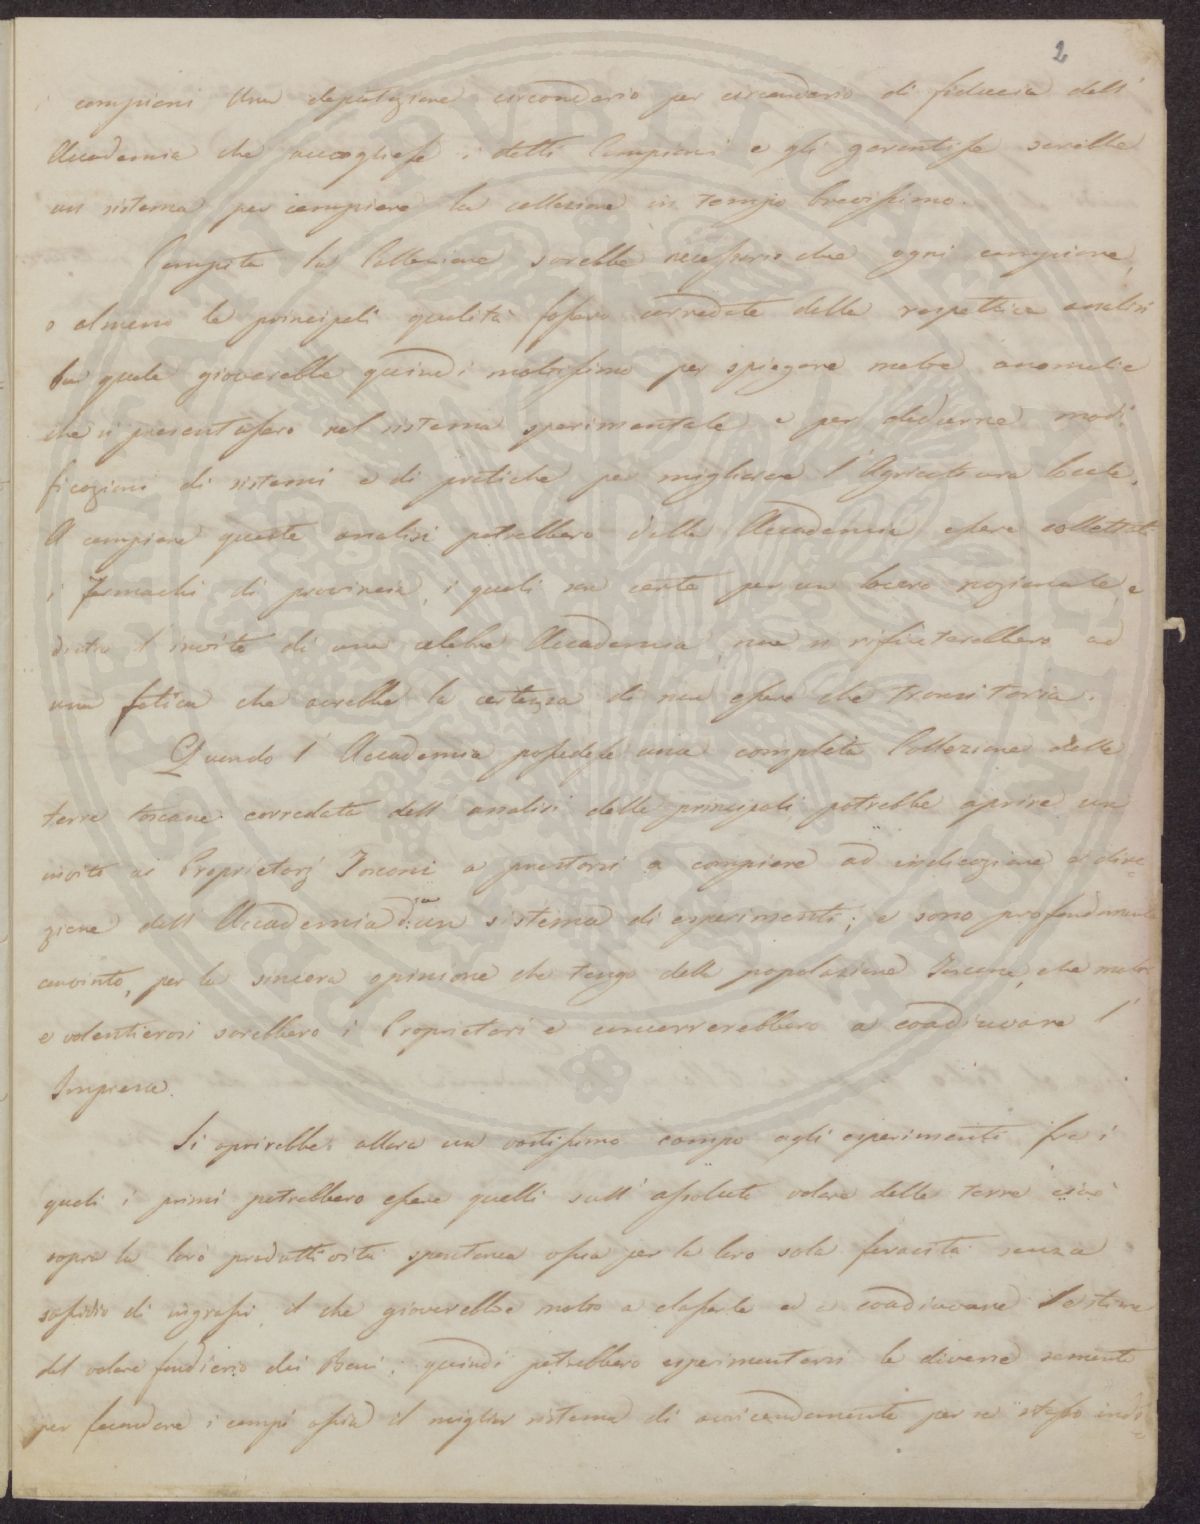 2
i campioni Una deputazione circondario per circondario di fiducia dell'
Accademia che accogliesse i detti Campioni e gli garantisse sarebbe
un sistema per compiere la collezione in tempo brevissimo.
Compita la Collezione sarebbe necessario che ogni campione,
o almeno le principali qualità fossero corredate della respettiva analisi
la quale gioverebbe quindi moltissimo per spiegare molte anomalie
che si presentassero nel sistema sperimentale e per dedurne modi
ficazioni di sistemi e di pratiche per migliorare l'Agricoltura locale.
A compiere queste analisi potrebbero dalla Accademia essere
i Farmacisti di provincia, i quali per un lavoro nazionale, e
dietro l'invito di una celebre Accademia non si rifiuterebbero ad
una fatica che avrebbe la certezza di non essere che transitoria.
Quando l'Accademia possedesse una completa Collezione delle
terre toscane corredata dell'analisi delle principali potrebbe aprire un
invito ai Proprietarj Toscani a prestarsi a compiere ad indicazione e dire
zione dell'Accademia un sistema di esperimenti; e sono profondamente
convinto, per la sincera opinione che tengo della popolazione Toscana, che molti
e volentierosi sarebbero i Proprietari e concorrerebbero a coadiuvare l'
Impresa.
Si aprirebbe allora un vastissimo campo agli esperimenti fra i
quali i primi potrebbero essere quelli sull'assoluto valore delle terre cioè
sopra la loro produttività spontanea ossia per la loro sola feracità senza
sussidio di ingrassi, il che gioverebbe molto a classarle ed a coadiuvare le stime
del valore fondiario dei Beni; quindi potrebbero esperimentarsi le diverse sementi
per fecondare i campi ossia il miglior sistema di avvicendamento per se stesso indi